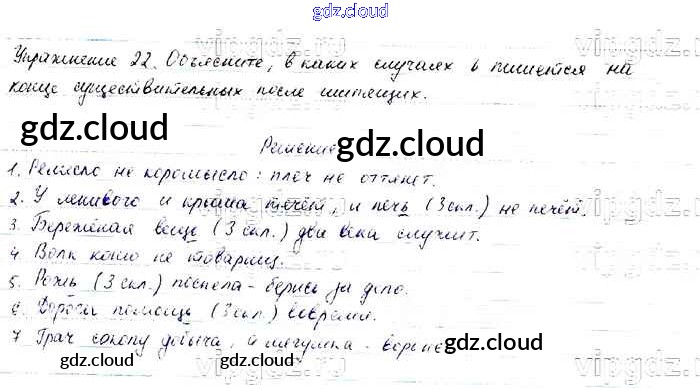 gdz.cloud
vipgdz.cloud
Упражнение 22. Объясните, в каких случаях ь пишется на
конце существительных после шипящих.
gdz.cloud
gdz.cloud
Решение
1. Ремесло не коромысло: плеч не оттянет.
2. У ленивого и крыша течёт, и печь (3 скл.) не печёт.
3. Бережёная вещь (3 скл.) два века служит.
4. Волк коню не товарищ.
5. Рожь (3 скл.) поспела - берись за дело.
6. Дорога помощь (3 скл) вовремя.
7 Грач соколу добыча, а лягушка - вороне
gdz.cloud
gdz.cloud
gdz.cloud